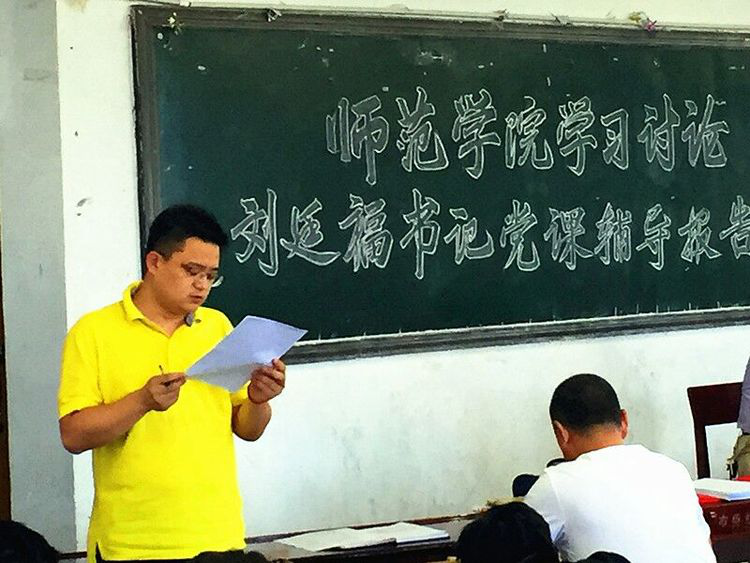 师范学院学习讨论
刘廷福书记党课辅导报告